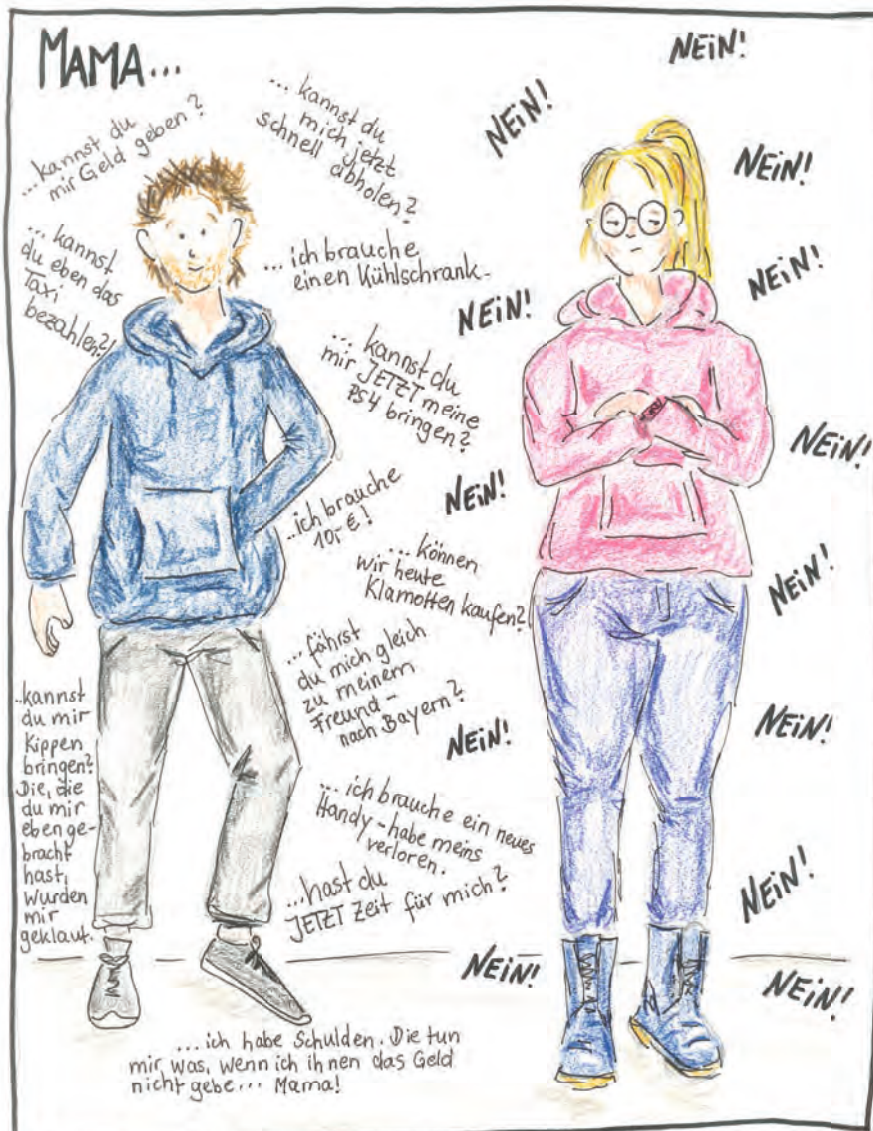 MAMA...
...kannst du
mir Geld geben?
... kannst du
mich jetzt
schnell abholen?
... kannst
du eben das
Taxi
bezahlen?!
...ich brauche
einen Kühlschrank.
... kannst du
mir JETZT meine
PS4 bringen?
...ich brauche
10,-€!
...können
wir heute
Klamotten kaufen?
... fährst
du mich gleich
zu meinem
Freund -
nach Bayern?
...kannst
du mir
Kippen
bringen?
Die, die
du mir
eben ge-
bracht
hast,
wurden
mir
geklaut.
... ich brauche ein neues
Handy - habe meins
verloren.
...hast du
JETZT Zeit für mich?
...ich habe Schulden. Die tun
mir was, wenn ich ihnen das Geld
nicht gebe... Mama!
NEiN!
NEiN!
NEiN!
NEiN!
NEiN!
NEiN!
NEiN!
NEiN!
NEiN!
NEiN!
NEiN!
NEiN!
NEiN!